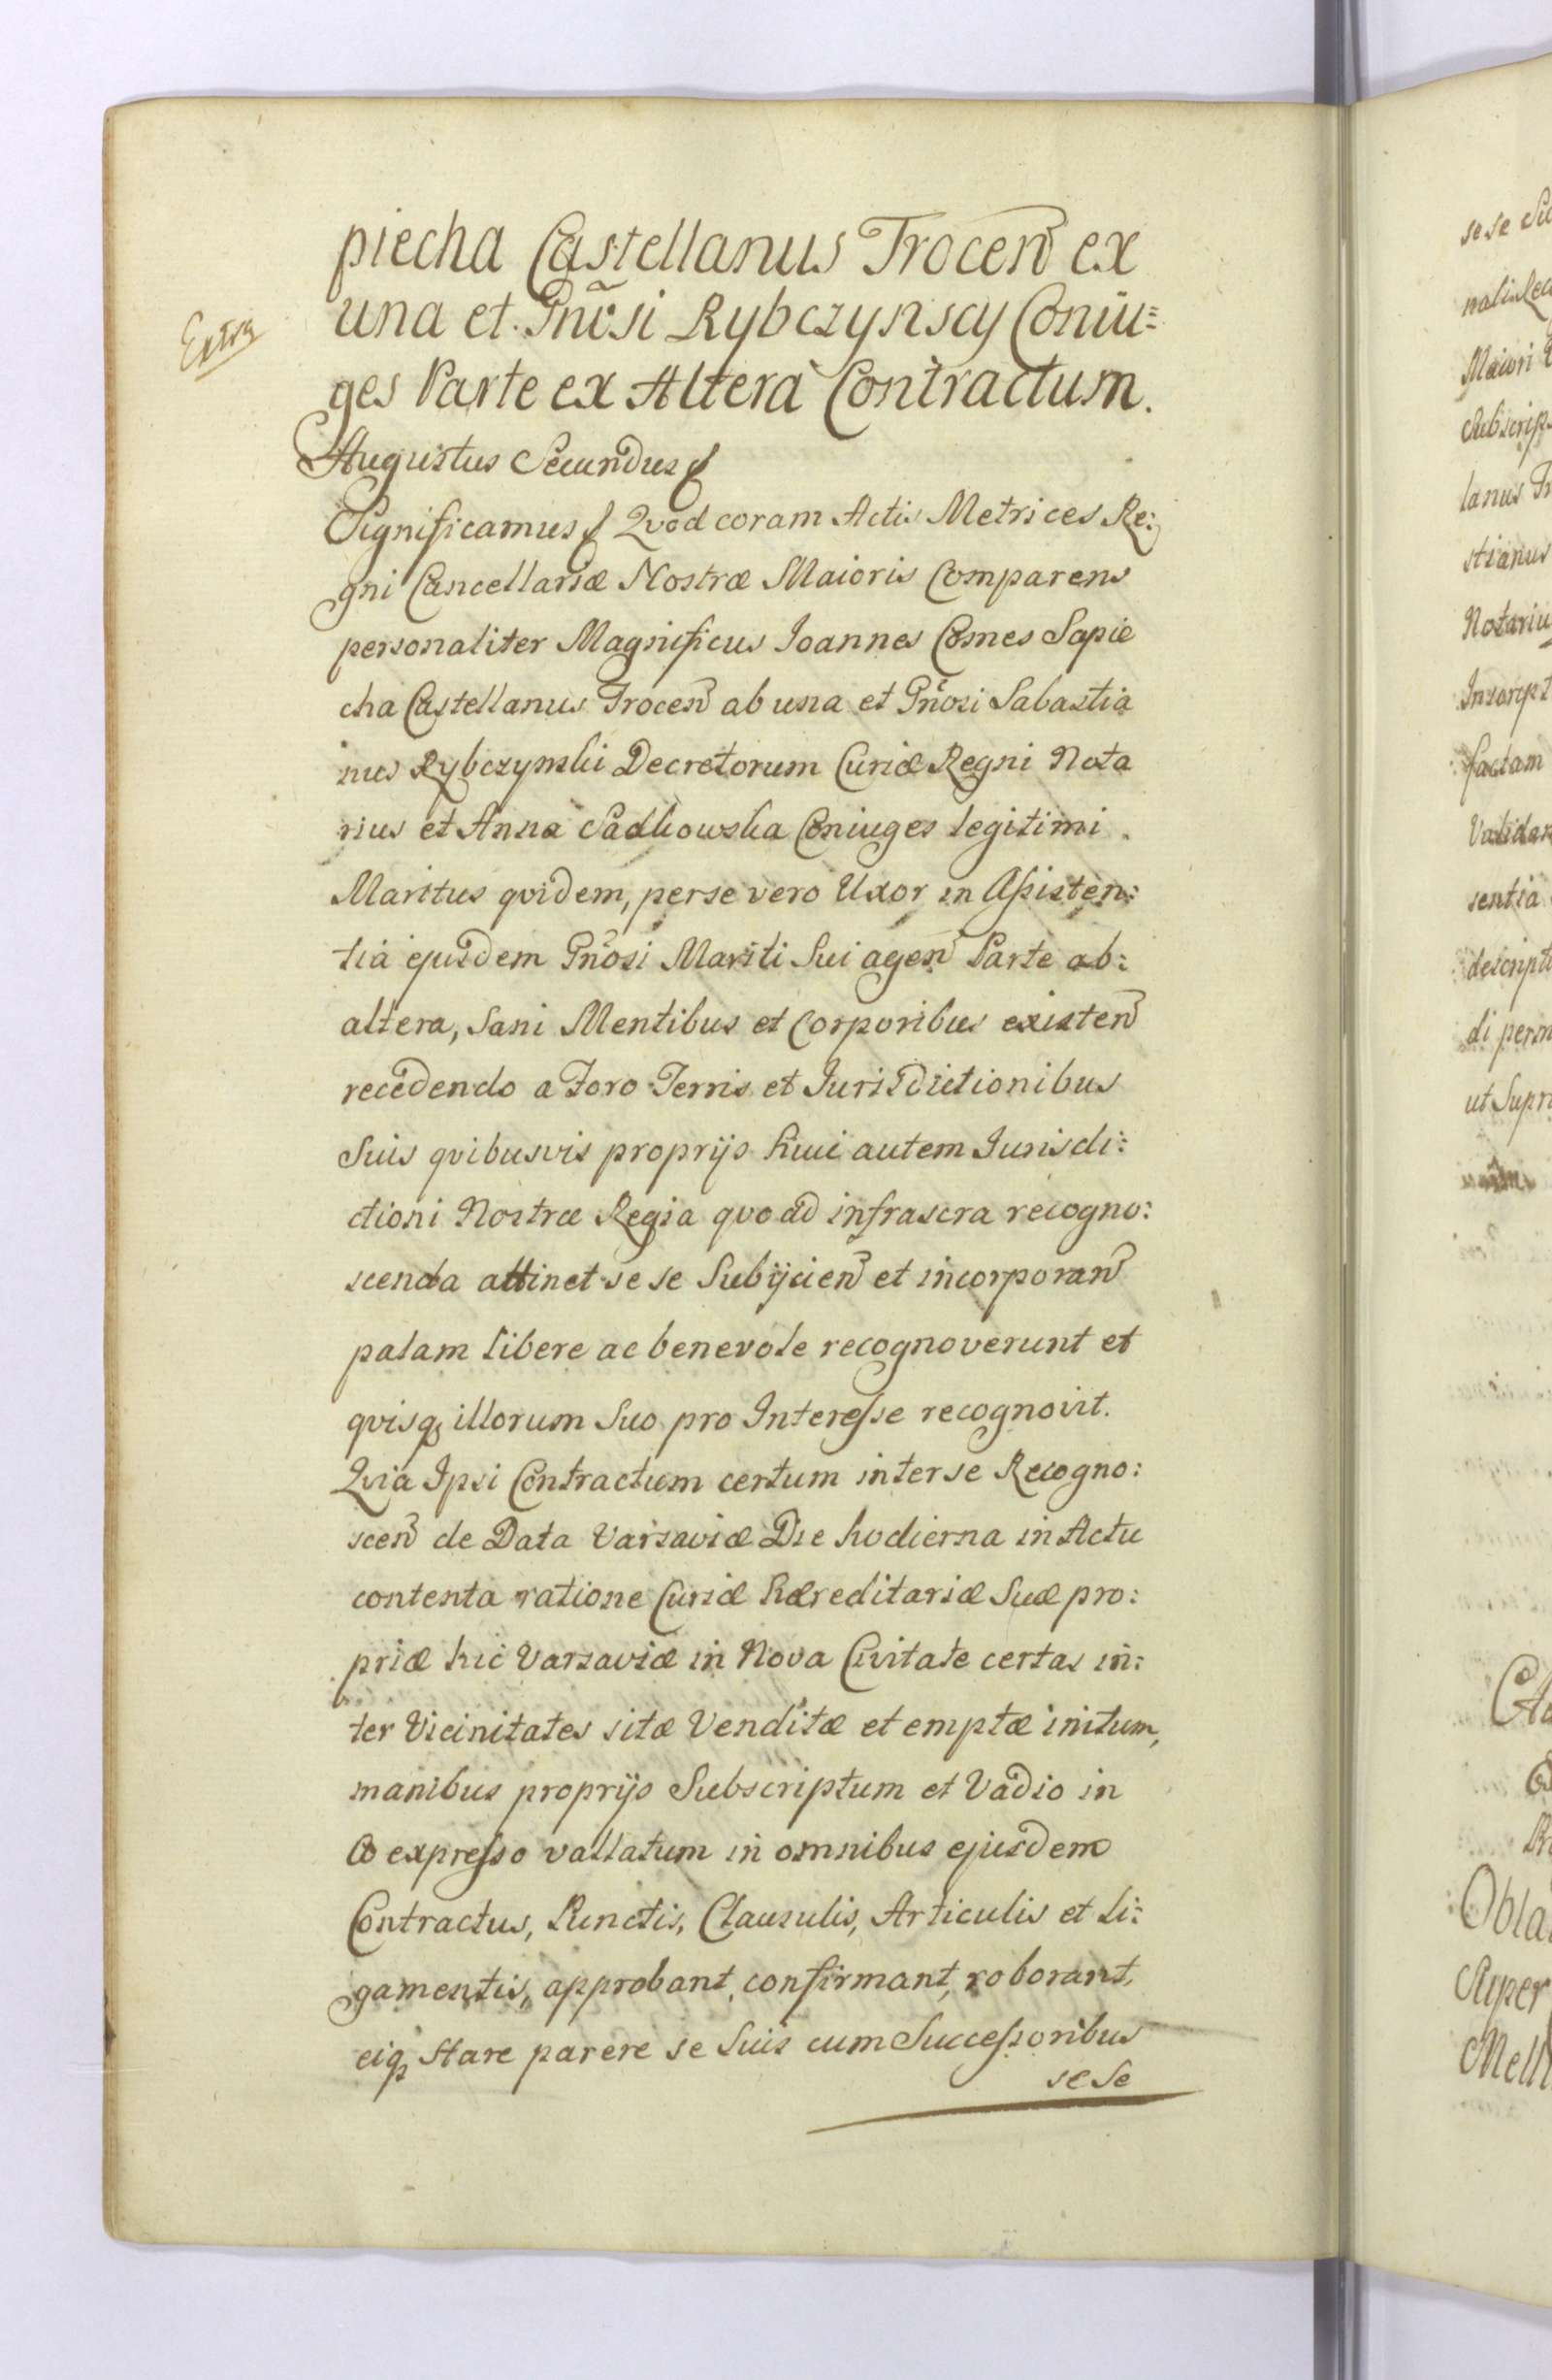 piecha Castellanus Trocen̄ ex
una et Gn̄osi Rybczynscy Coniu=
ges Parte ex Altera Contractum.
Extra
Augustus Secundus
Significamus Quod coram Actis Metrices Re:
gni Cancellariæ Nostræ Maioris Comparens
personaliter Magnificus Ioannes Comes Sapie
cha Castellanus Trocen̄ ab una et Gn̄osi Sabastia
nus Rybczynski Decretorum Curiæ Regni Nota
rius et Anna Sadkowska Coniuges legitimi
Maritus qvidem, per se vero Uxor in Assisten:
tia ejusdem Gn̄osi Mariti Sui agen̄ Parte ab:
altera, Sani Mentibus et Corporibus existen̄
recedendo a Foro Terris et Jurisdictionibus
Suis qvibusvis proprijs huic autem Jurisdi:
ctioni Nostræ Regia quo ad infrascra recogno:
scenda attinet se se Subijcien̄ et incorporan̄
palam libere ac benevole recognoverunt et
qvisq illorum Suo pro Interesse recognovit.
Qvia Ipsi Contractum certum inter se Recogno:
scen̄ de Data Varsaviæ Die hodierna in Actu
contenta ratione Curiæ Hæreditariæ Suæ pro:
priæ hic Varsaviæ in Nova Civitate certas in:
ter Vicinitates sitæ Venditæ et emptæ initum,
manibus proprijs Subscriptum et Vadio in
eo expresso vallatum in omnibus ejusdem
Contractus, Punctis, Clausulis, Articulis et Li:
gamentis, approbant, confirmant, roborant,
eiq stare parere se Suis cum Successoribus
se se
se se
Maiori
Subscrip
lanus
stianus
Notariu
Inscript
factam
Validan
sentia
descript
di perm
ut Supr
Obla
Super